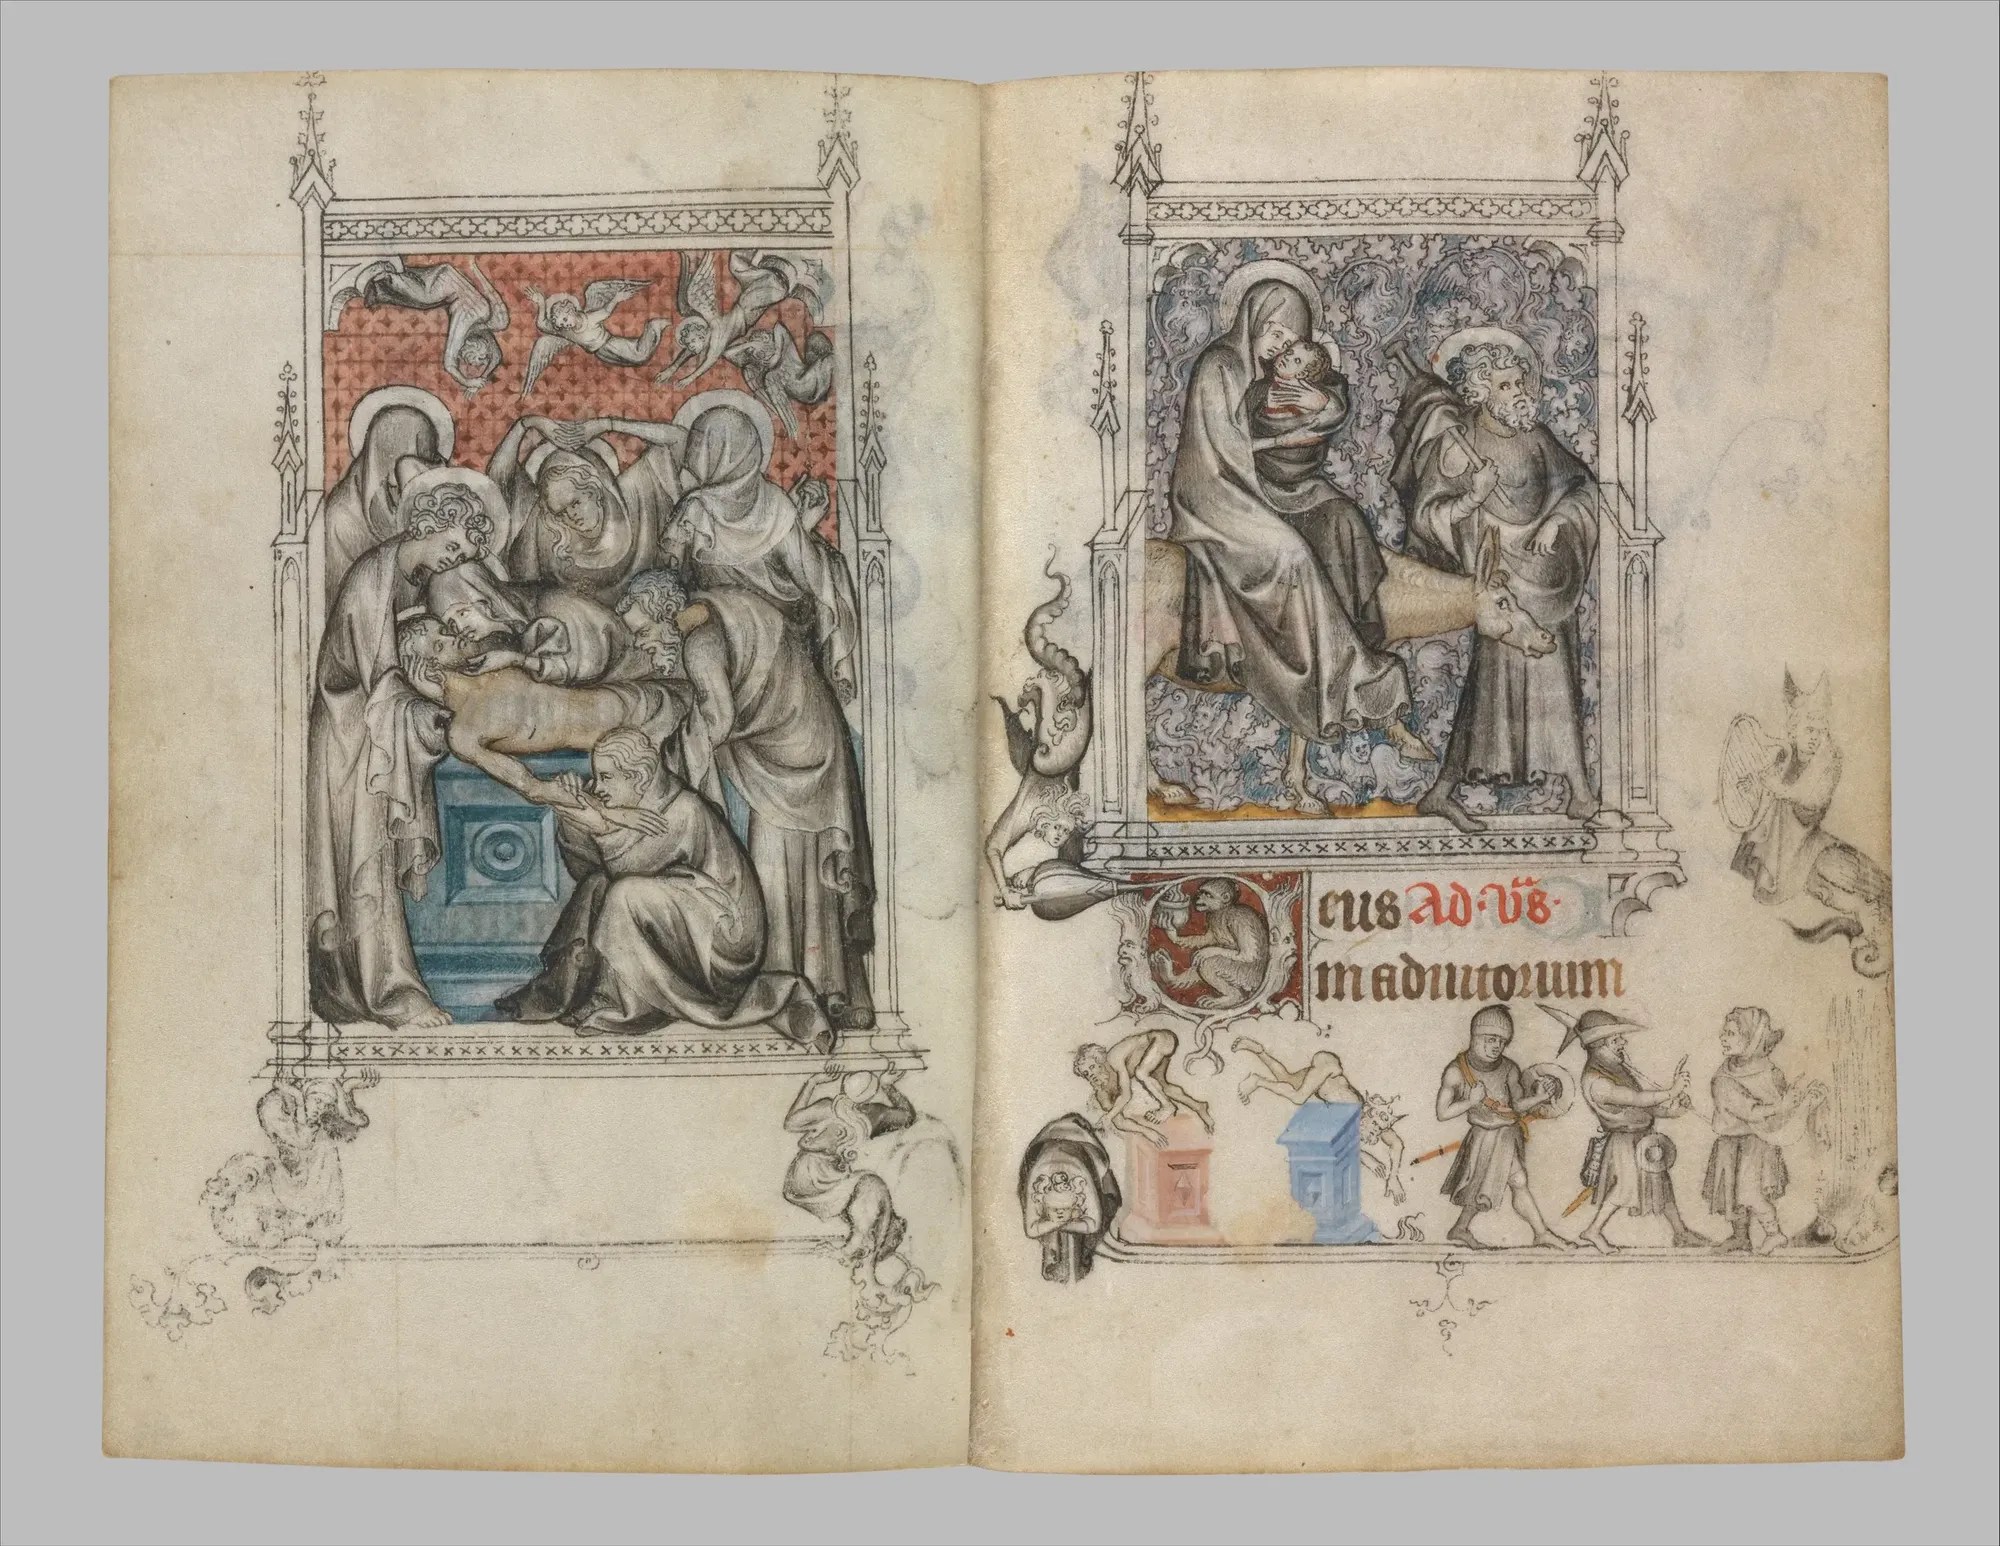 eus Ad. Vs.
in adiutorium